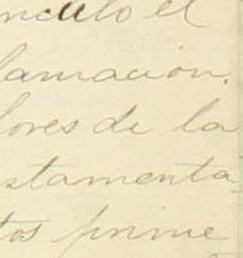 nculo el
lamacion.
lores de la
stamenta-
tos prime